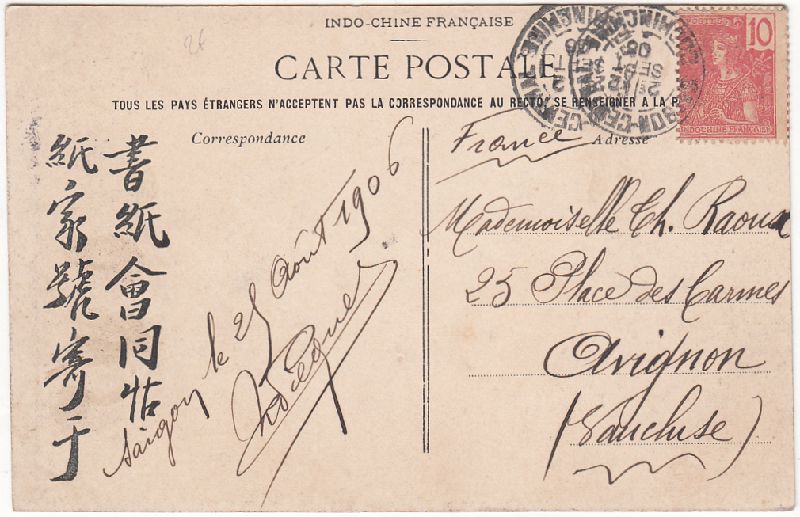 INDO-CHINE FRANÇAISE
CARTE POSTALE
TOUS LES PAYS ÉTRANGERS N'ACCEPTENT PAS LA CORRESPONDANCE AU RECTO, SE RENSEIGNER A LA P
Correspondance
Adresse
書紙會同帖
紙家號寄于
Saigon le 25 Août 1906
France
Mademoiselle Ch. Raoux
25 Place des Carmes
Avignon
(Vaucluse)
10
INDOCHINE FRANÇAISE
26